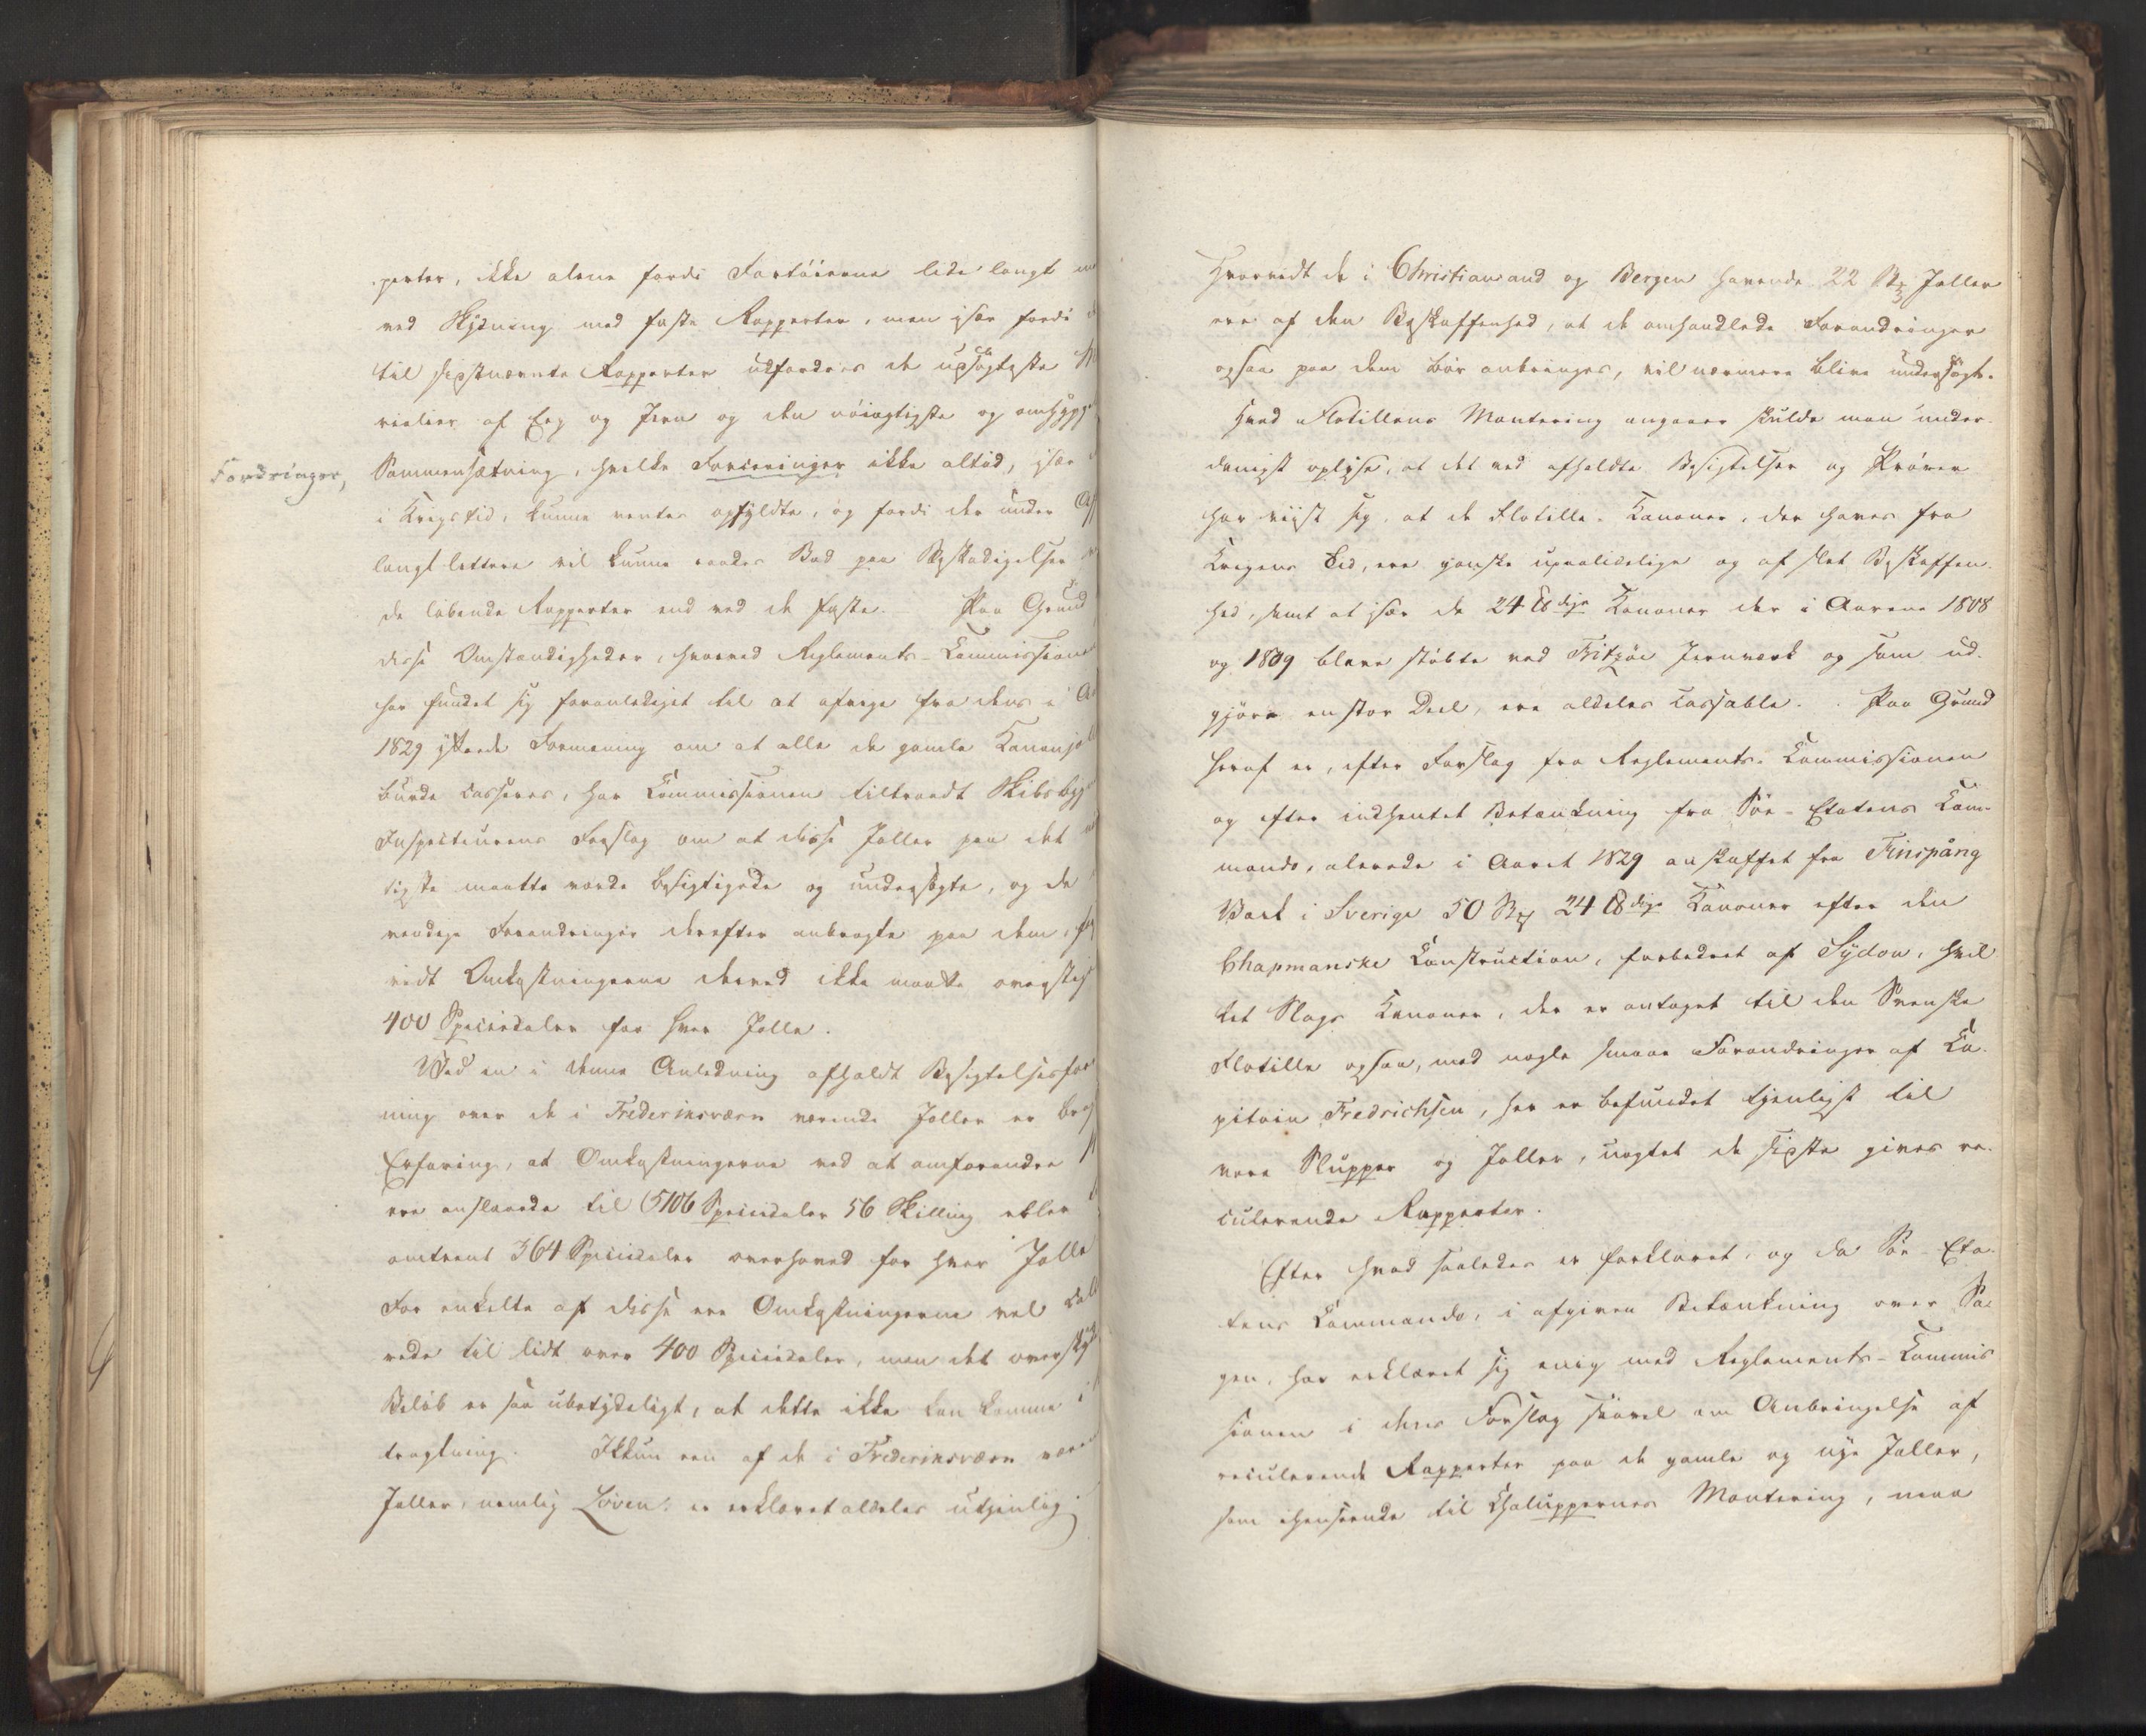 perter, ikke alene fordi Fartöierne lide langt
ved Skydning med faste Rapperter, men især fordi
til sidstnævnte Rapperter udfordres de udsögteste
rialier af Eeg og Jern og den nöiagtigste og omhygge
Fordringer,
Sammensætning, hvilke Forvisninger ikke altid, især
i Krigstid, kunne ventes opfyldte, og fordi der under
langt lettere vil kunne raades Bod paa Beskadigelser
de löbende Rapperter end ved de faste. Paa Grund
disse Omstændigheder, hvorved Reglements-Commissionen
har fundet sig foranlediget til at afvige fra dens i
1829 yttrede Formening om at alle de gamle Kanonjol
burde casseres, har Commissionen tiltraadt Skibsbygg
Inspecteurens Forslag om at disse Joller paa det
tigste maatte vorde besigtigede og undersögte, og de
vendige Forandringer derefter anbragte paa dem,
vidt Omkostningerne derved ikke maatte overstige
400 Speciedaler for hver Jolle.
Ved en i denne Anledning afholdt Besigtelsesfor
ning over de i Frederiksværn værende Joller er brag
Erfaring, at Omkostningerne ved at omforandre
ere anslaaede til 5106 Speciedaler 56 Skilling eller
omtrent 364 Speciedaler overhoved for hver Jolle
For enkelte af disse ere Omkostningerne vel cal
rede til lidt over 400 Speciedaler, men det overskyd
Belöb er saa ubetydeligt, at dette ikke kan komme i
tragtning. Ikkun een af de i Frederiksværn være
Joller, nemlig Löven: er erklæret aldeles utjenlig.
Hvorvidt de i Christiansand og Bergen havende 22 Stkr Joller
ere af den Beskaffenhed, at de omhandlede Forandringer
ogsaa paa dem bör anbringes, vil nærmere blive undersögt.
Hvad Flotillens Montering angaaer skulde man under-
danigst oplyse, at det ved afholdte Besigtelser og Pröver
har viist sig, at de Flotille-Kanoner, der haves fra
Krigens Tid, ere ganske upaalidelige og af slet Beskaffen-
hed, samt at især de 24 ℔dige Kanoner der i Aarene 1808
og 1809 bleve stöbte ved Fritzöe Jernværk og som ud-
gjöre en stor Deel, ere aldeles cassable. Paa Grund
heraf er, efter Forslag fra Reglements-Commissionen
og efter indhentet Betænkning fra Söe-Etatens Com-
mando, allerede i Aaret 1829 anskaffet fra Finspång
Værk i Sverige 50 Stkr 24 ℔dige Kanoner efter den
Chapmanske Construction, forbedret af Sydow, hvil
ket Slags Kanoner, der er antaget til den Svenske
Flotille ogsaa, med nogle smaae Forandringer af Ca-
pitain Fredrichsen, her er befundet tjenligst til
vore Slupper og Joller, uagtet de sidste gives re-
culerende Rapperter.
Efter hvad saaledes er forklaret, og da Söe-Eta-
tens Commando, i afgiven Betænkning over Sa-
gen, har erklæret sig enig med Reglements-Commis
sionen i dens Forslag saavel om Anbringelse af
reculerende Rapperter paa de gamle og nye Joller,
som ihenseende til Chaluppernes Montering, maa